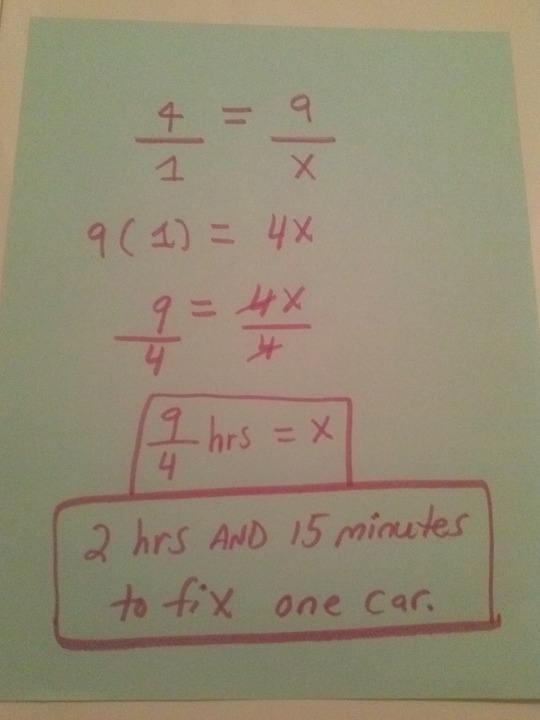 4/1 = 9/x
9(1) = 4x
9/4 = 4x/4
9/4 hrs = x
2 hrs AND 15 minutes
to fix one car.